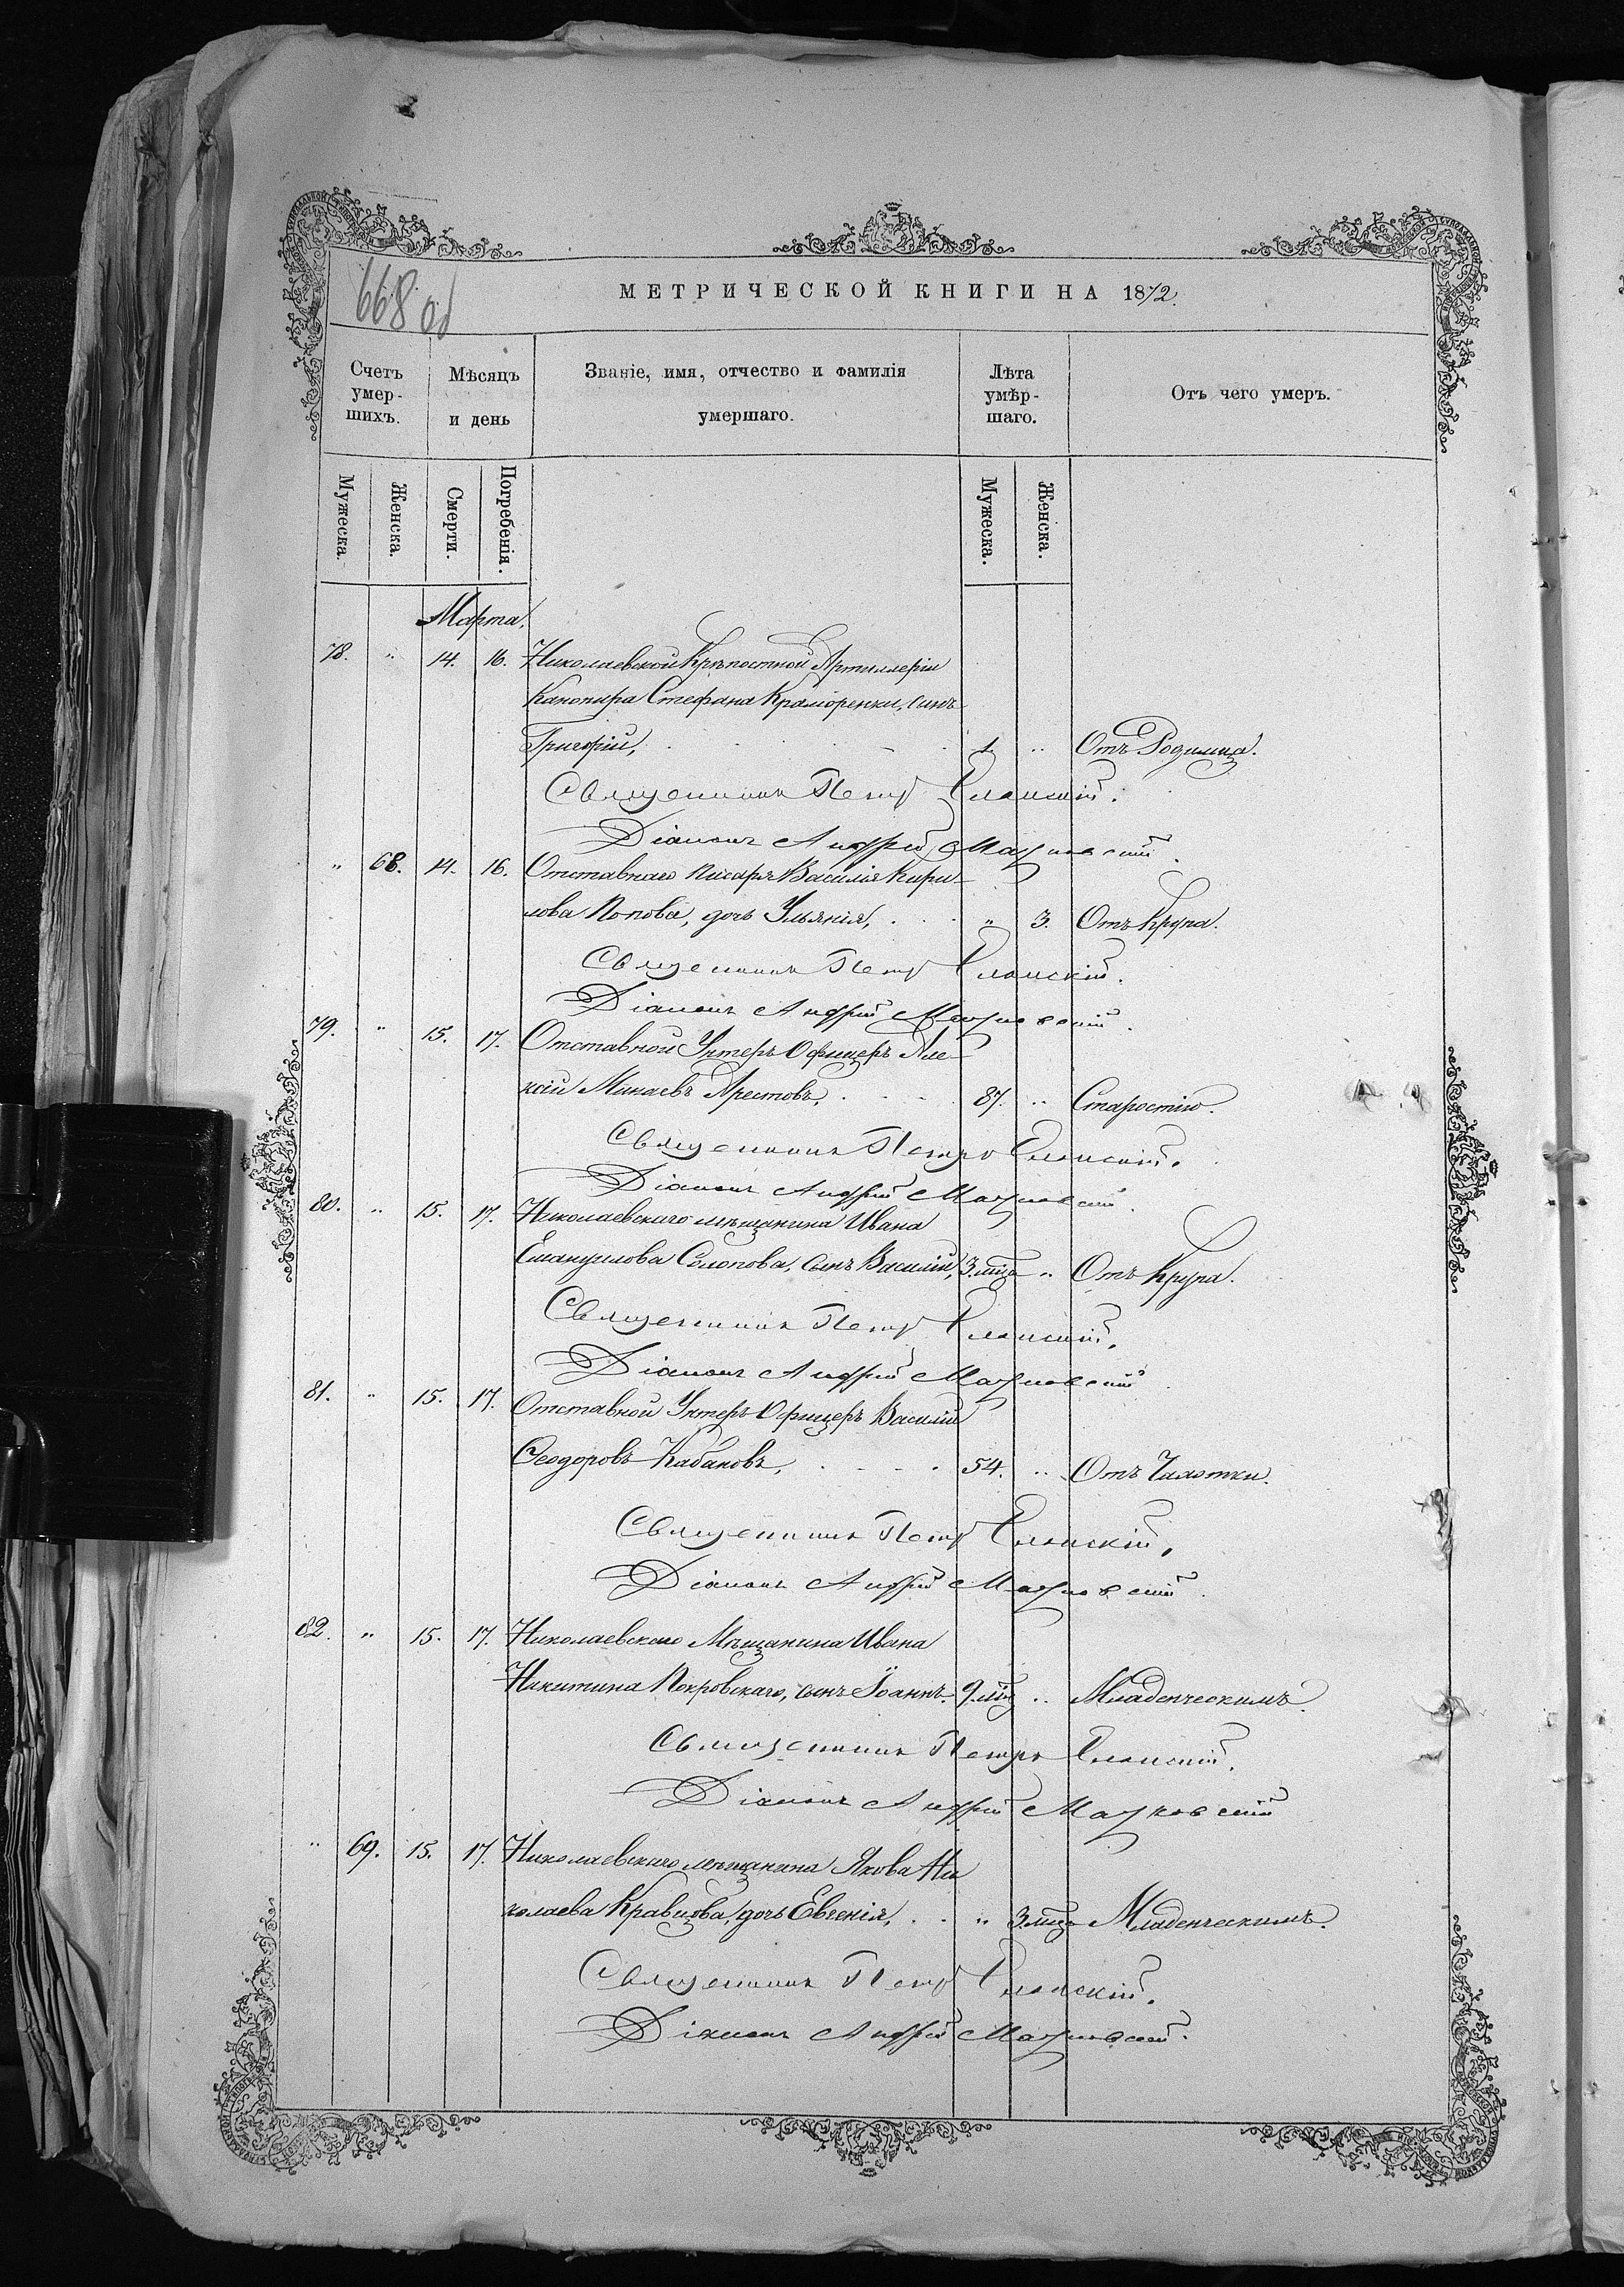 668 об
МЕТРИЧЕСКОЙ КНИГИ НА 1872.
Счетъ умер- шихъ.
Мѣсяцъ и день
Званіе, имя, отчество и фамилія умершаго.
Лѣта умѣр- шаго.
Отъ чего умеръ.
Мужеска.
Женска.
Смерти.
Погребенія.
Мужеска.
Женска.
Марта,
78. " 14. 16. Николаевской Крѣпостной Артиллеріи
Канонира Стефана Краморенки, сынъ
Григорій, 1. " Отъ Родимца.
Священникъ Петръ
Діаконъ Андрей
" 68. 14. 16. Отставнаго писаря Василія Кири-
лова Попова, дочь Ульянія, " 3. Отъ Крупа.
Священникъ Петръ
Діаконъ Андрей
79. " 15. 17. Отставной Унтеръ Офицеръ Але-
ксій Минаевъ Арестовъ, 87. " Старостію.
Священникъ Петръ
Діаконъ Андрей
80. " 15. 17. Николаевскаго мѣщанина Ивана
Емануилова сынъ Василій, 3. мца " Отъ Крупа.
Священникъ Петръ
Діаконъ Андрей
81. " 15. 17. Отставной Унтеръ Офицеръ Василій
Ѳеодоровъ Кабановъ, 54. " Отъ Чахотки.
Священникъ Петръ
Діаконъ Андрей
82. " 15. 17. Николаевскаго Мѣщанина Ивана
Никитина Покровскаго, сынъ Іоаннъ. 9. мц " Младенческимъ.
Священникъ Петръ
Діаконъ Андрей
" 69. 15. 17. Николаевскаго мѣщанина Якова Ни
колаева Кравцова, дочь Евгенія, " 3 мца Младенческимъ.
Священникъ Петръ
Діаконъ Андрей